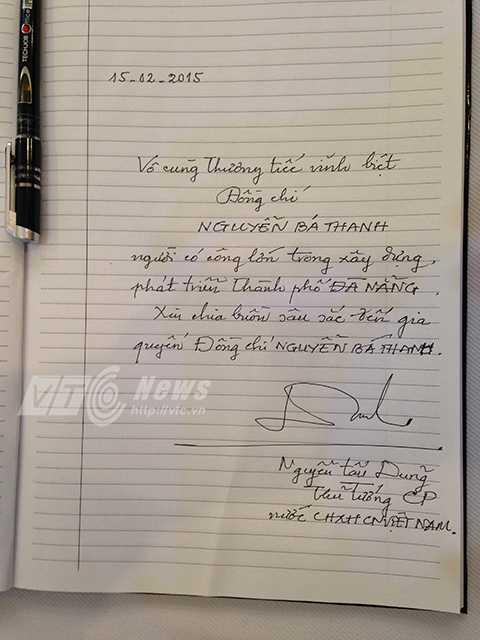 TECHJOB
15-02-2015
Vô cùng thương tiếc vĩnh biệt
Đồng chí
NGUYỄN BÁ THANH
người có công lớn trong xây dựng,
phát triển Thành phố ĐÀ NẴNG.
Xin chia buồn sâu sắc đến gia
quyến Đồng chí NGUYỄN BÁ THANH.
VTC News
http://vtc.vn
Nguyễn Tấn Dũng
Thủ Tướng CP
nước CHXHCN VIỆT NAM.